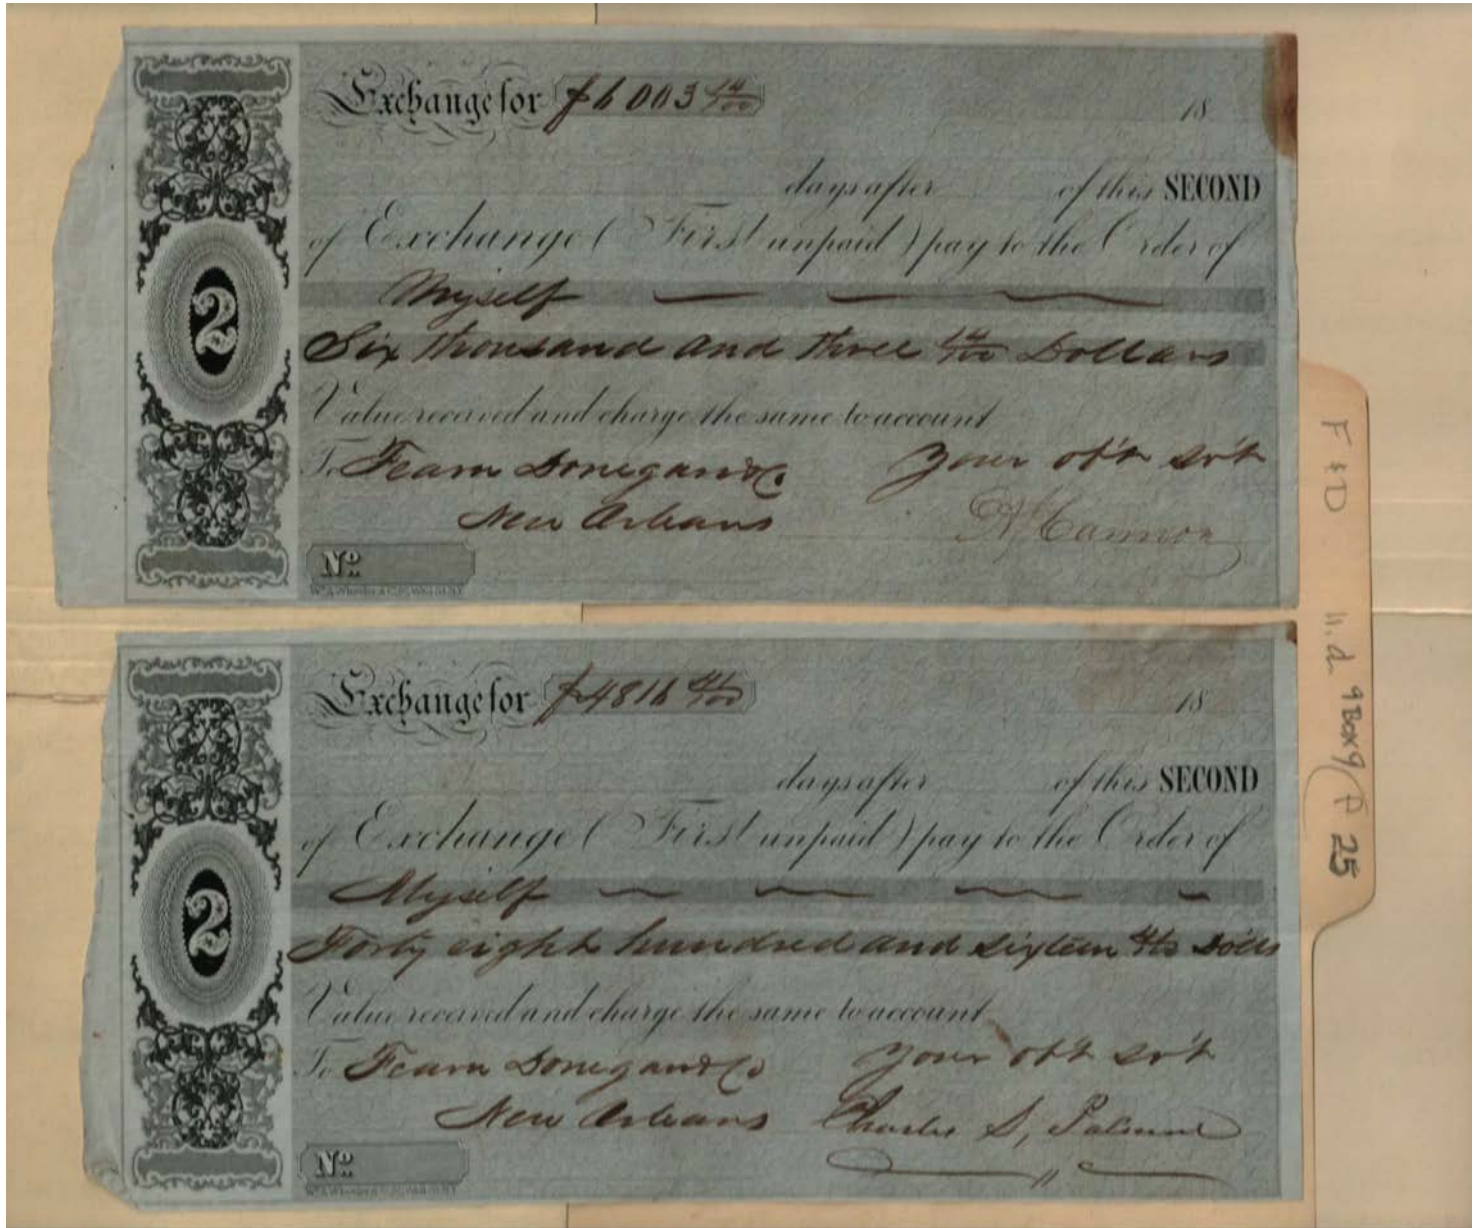 Exchange for $6003 14/100
18
days after of this SECOND
of Exchange (First unpaid) pay to the Order of
Myself
Six thousand and three 14/100 Dollars
Value received and charge the same to account
To Fearn Donegan & Co. Your obt svt
New Orleans Cannon
2
No.
Exchange for $4816 41/100
18
days after of this SECOND
of Exchange (First unpaid) pay to the Order of
Myself
Forty eight hundred and sixteen Dolls
Value received and charge the same to account
To Fearn Donegan & Co Your obt svt
New Orleans Charles S,
2
No.
F & D n.d. 9 Box 9 25